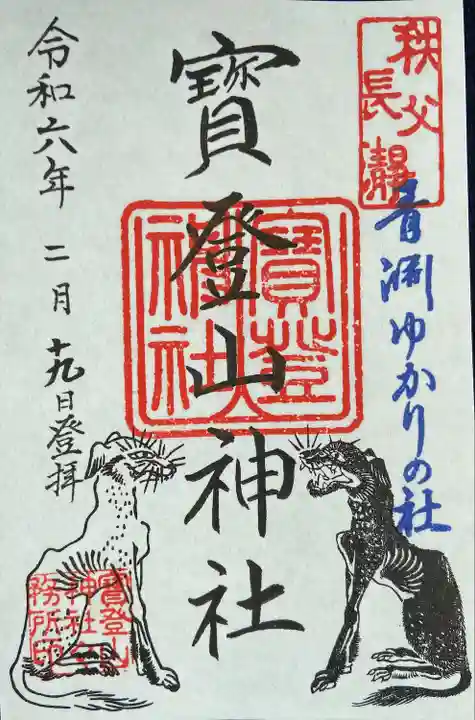 秩父
長瀞
青淵ゆかりの社
寶登山神社
寶登山
神社
令和六年 二月 十九日登拝
寶登山
神社社
務所印